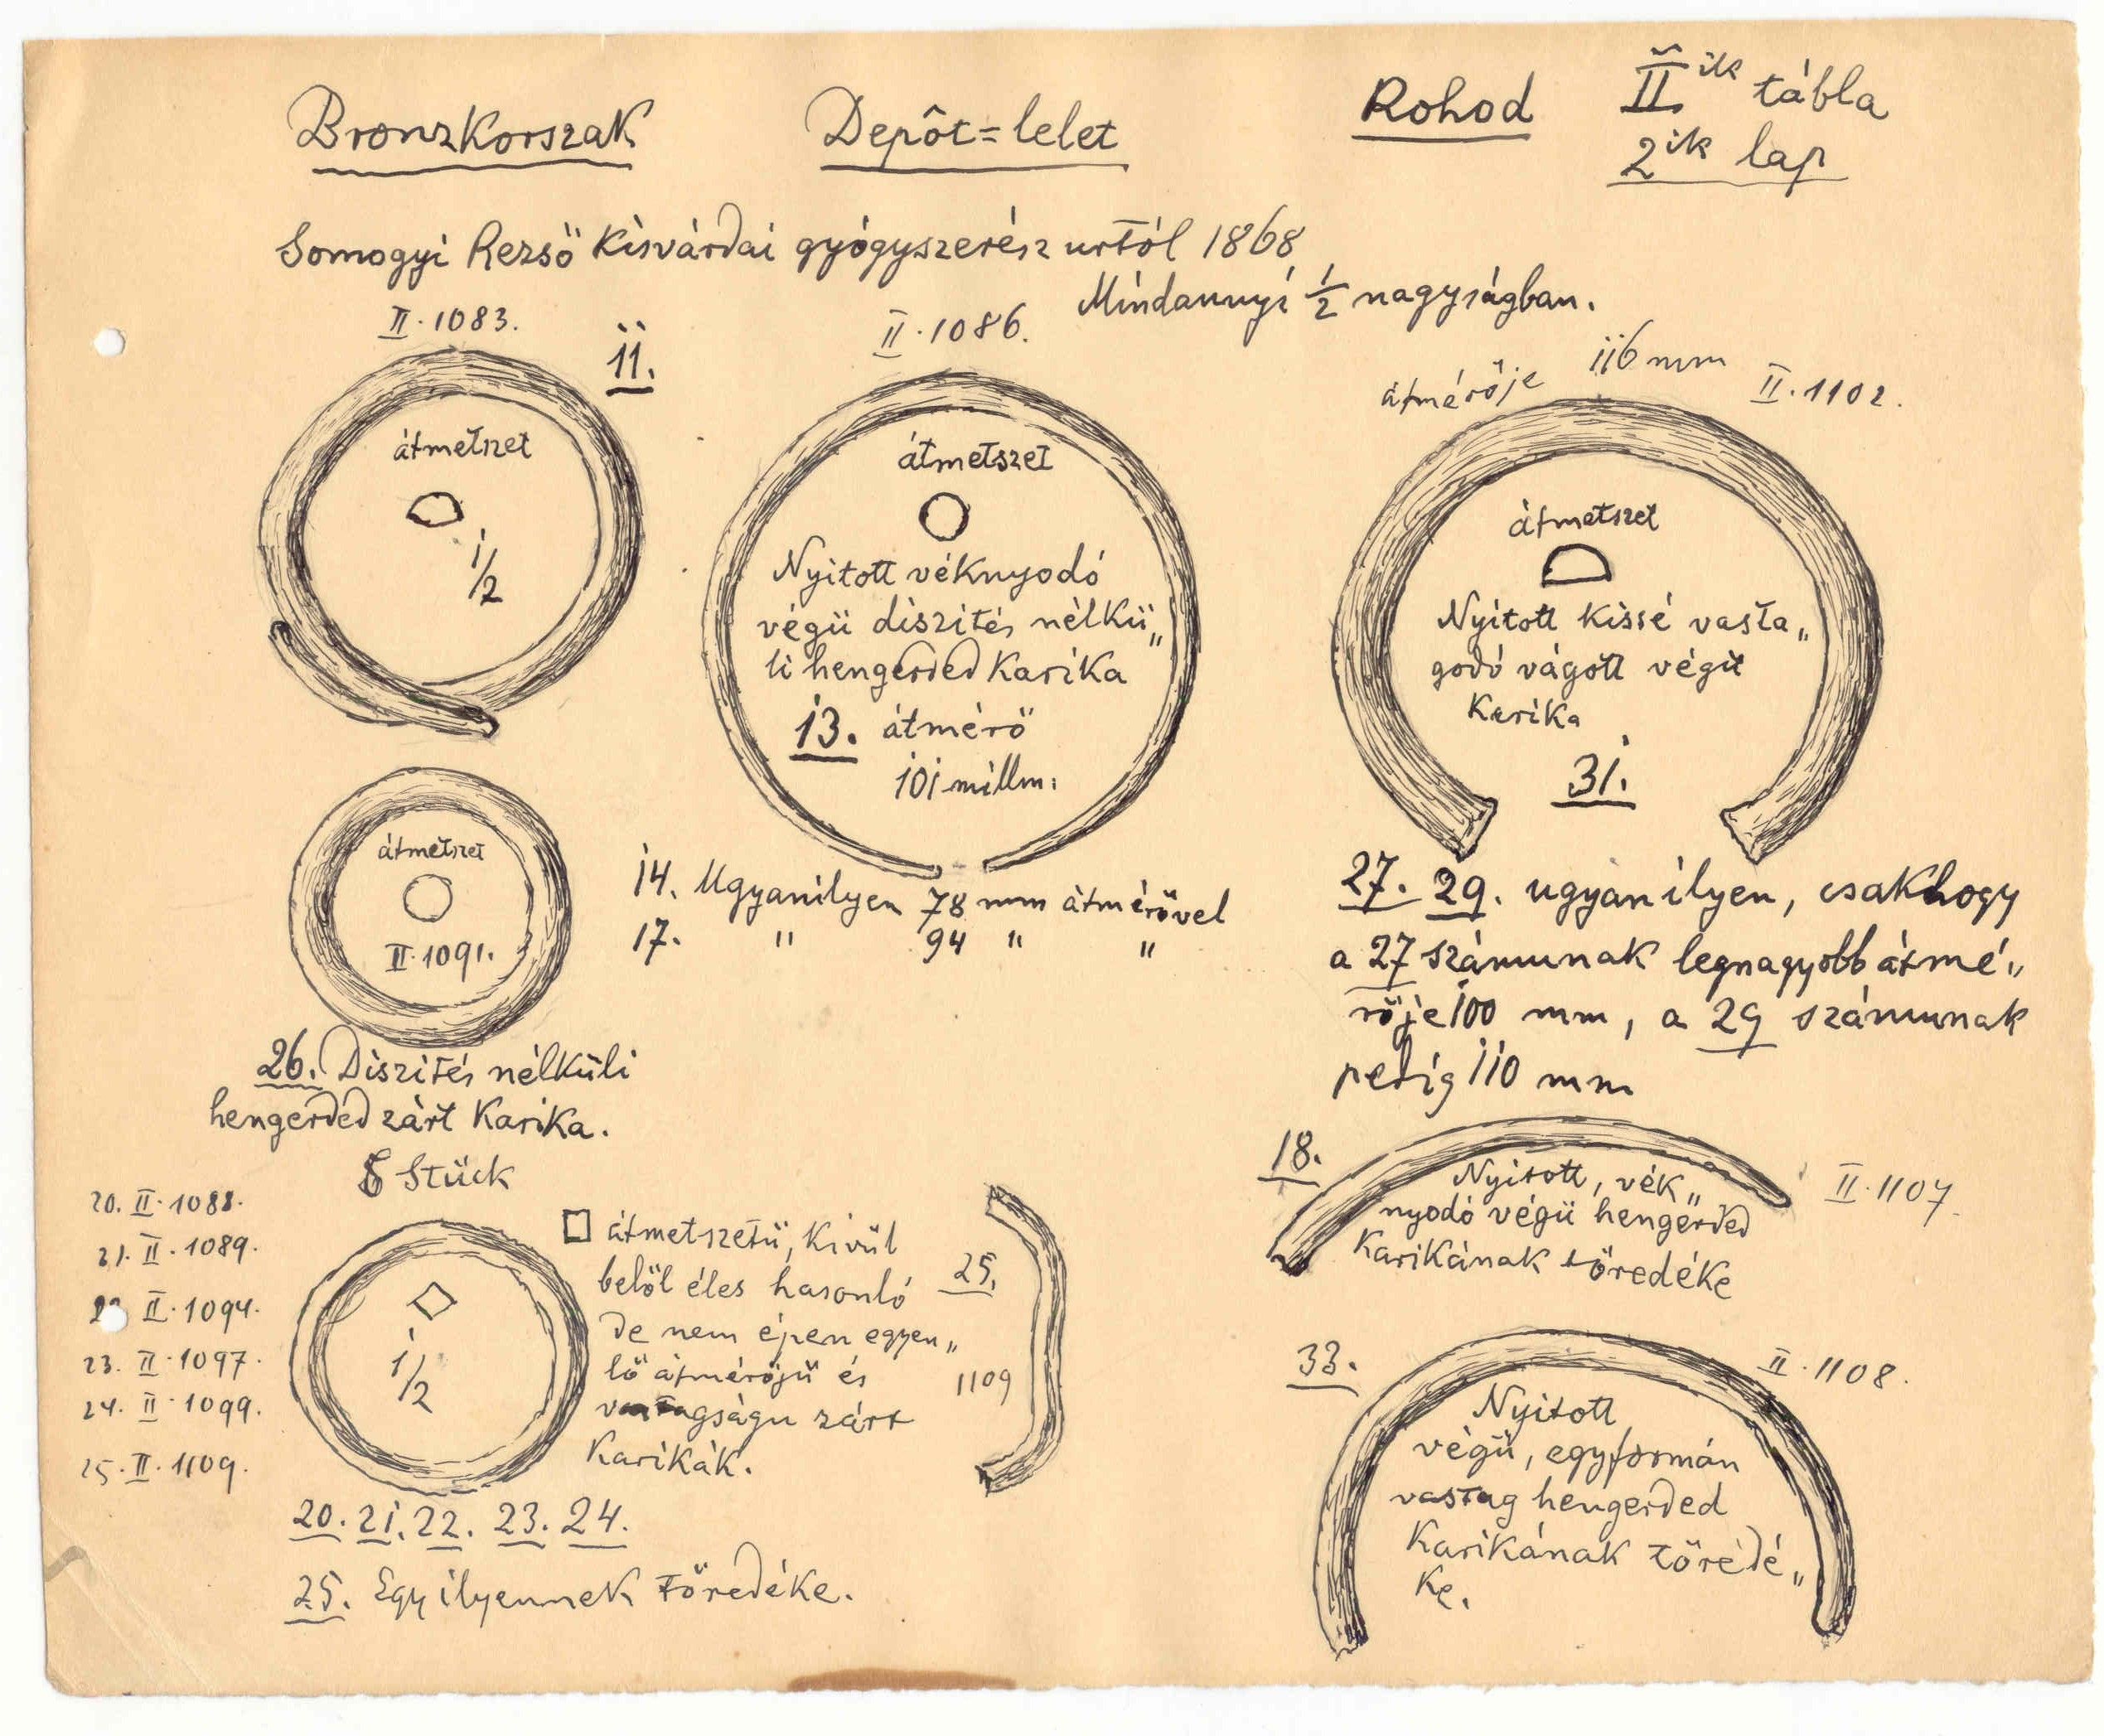 Bronzkorszak
Depôt=lelet
Rohod
II ik tábla
2ik lap
Somogyi Rezső Kisvárdai gyógyszerész urtól 1868
Mindannyi 1/2 nagyságban.
II.1083.
11.
átmetszet
1/2
II.1086.
átmetszet
Nyitott véknyodó
végü diszités nélkü„
li hengerded Karika
13. átmérő
101 millm:
14. Ugyanilyen 78 mm átmérővel
17. " 94 " "
átmérője 116 mm II.1102.
átmetszet
Nyitott kissé vasta„
godó vágott végü
Karika
31.
27. 29. ugyanilyen, csakhogy
a 27 számunak legnagyobb átmé„
rője 100 mm, a 29 számunak
pedig 110 mm
átmetszet
II.1091.
26. Diszités nélküli
hengerded zárt Karika.
Stück
20. II.1088.
21. II.1089.
II.1094.
23. II.1097.
24. II.1099.
25. II.1109.
1/2
átmetszetü, kivül
belől éles hasonló
de nem épen egyen„
lő átmérőjü és
vastagságu zárt
Karikák.
20. 21. 22. 23. 24.
25. Egy ilyennek töredéke.
25.
1109
18.
Nyitott, vék„
nyodó végü hengerded
Karikának töredéke
II.1107.
33.
II.1108.
Nyitott
végü, egyformán
vastag hengerded
Karikának töredé„
ke.